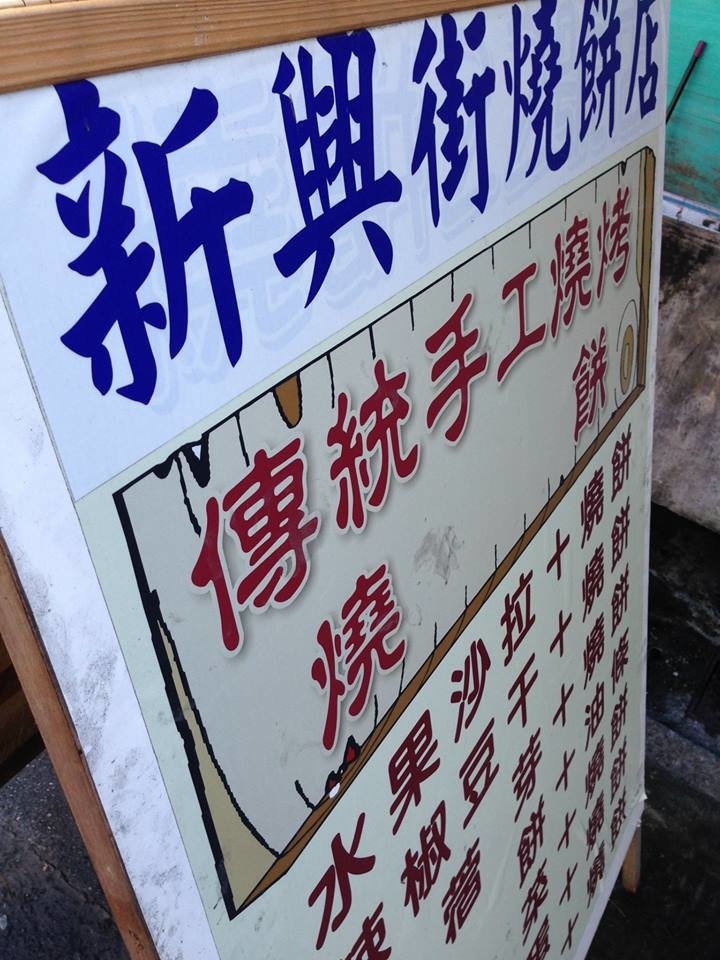 新興街燒餅店
傳統手工燒烤
燒餅
水果沙拉+燒餅
辣椒豆干+燒餅
芽+燒餅
餅+油條
菜+燒餅
蛋+燒餅
+燒餅